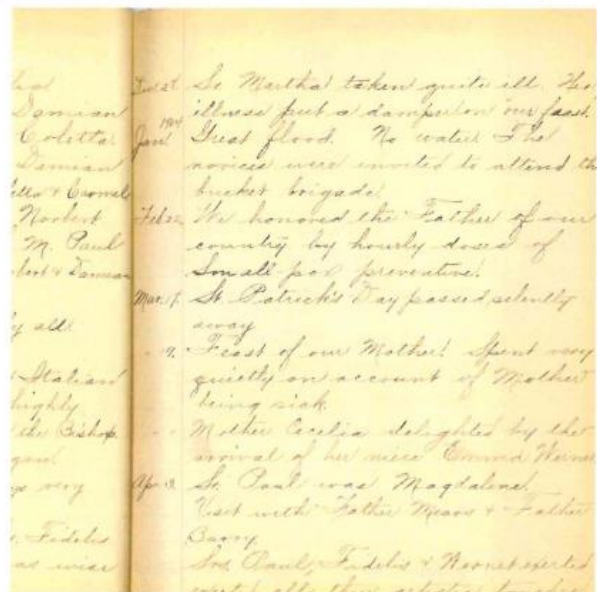 Damian
Coletta
Damian
& Carmel
Norbert
M. Paul
& Damian
all
Italian
highly
the Bishop.
very
Fidelis
as wise
Sr. Martha taken quite ill. Her
illness put a damper on our feast.
1904
Jan Great flood. No water. The
novices were invited to attend the
bucket brigade
Feb 22 We honored the Father of our
country by hourly doses of
Small pox preventive!
Mar. 17. St. Patrick's Day passed silently
away
19. Feast of our Mother! Spent very
quietly on account of Mother
being sick.
Mother Cecelia delighted by the
arrival of her niece Emma Werner
Apr Sr. Paul was Magdalene!
Visit with Father & Father
Barry.
Srs. Paul, Fidelis & exerted
all their artistic touches